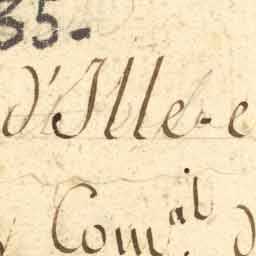 35-
d'Ille-e
Com.al d